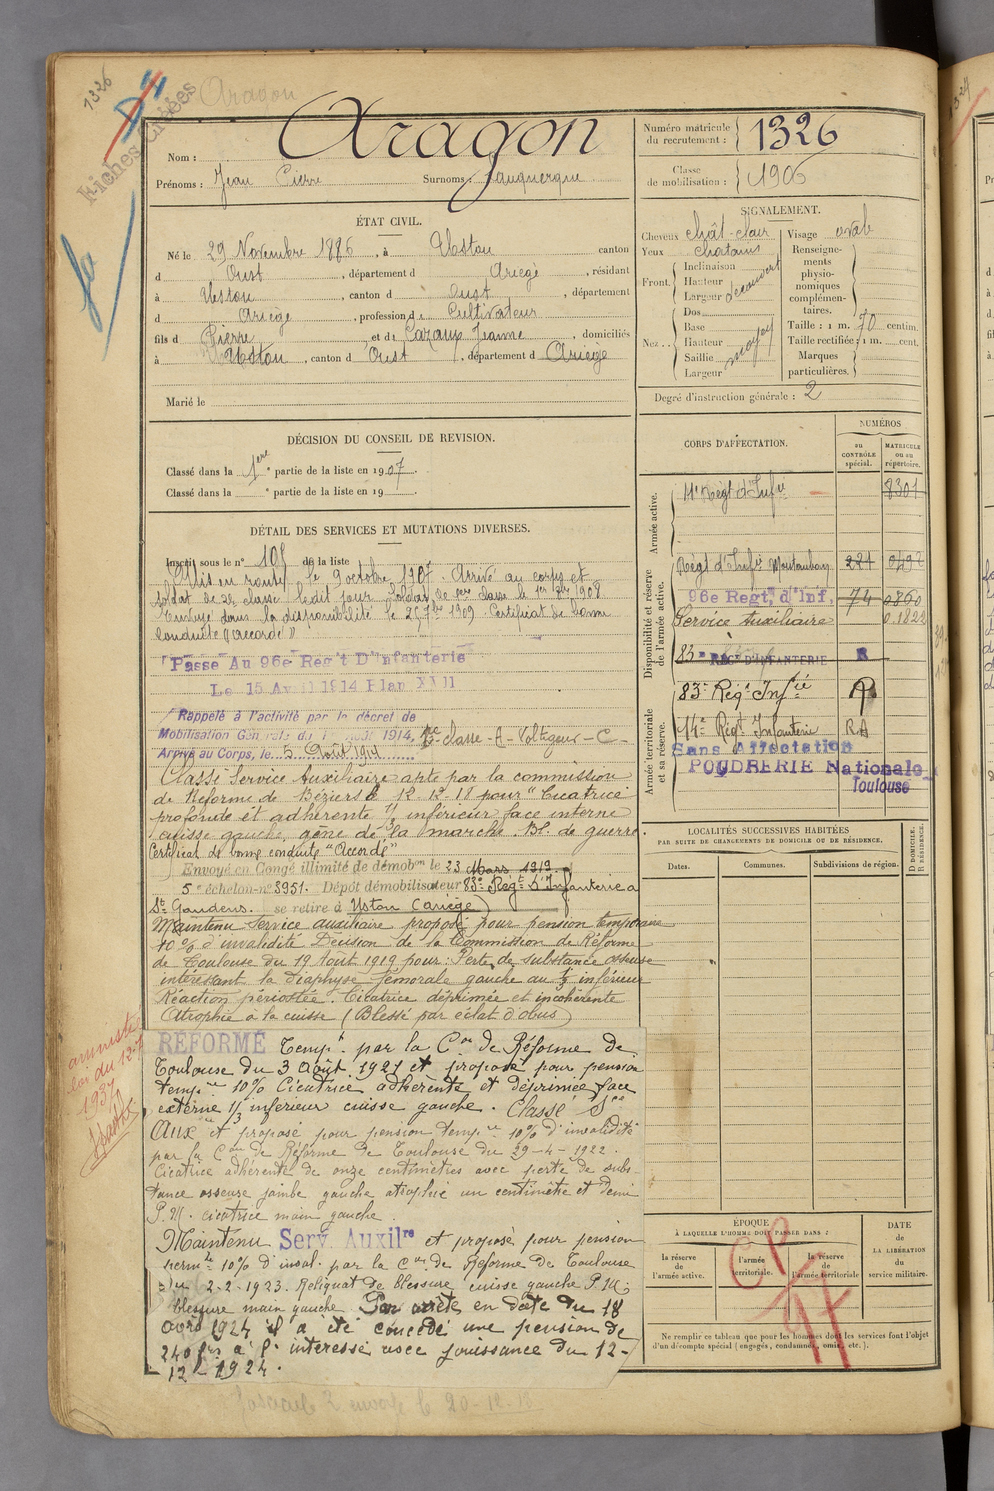 1326
Aragon
Fiches
Nom : Aragon
Prénoms : Jean Pierre Surnoms :
Numéro matricule du recrutement : 1326
Classe de mobilisation : 1906
ÉTAT CIVIL.
Né le 29 Novembre 1886, à Ustou canton
d Oust, département d Ariège, résidant
à Ustou, canton d Oust, département
d Ariège, profession d Cultivateur
fils d Pierre et de Cazaux Jeanne, domiciliés
à Ustou, canton d Oust, département d Ariège
Marié le
SIGNALEMENT.
Cheveux chât-clair
Yeux chatains
Front. Inclinaison
Hauteur
Largeur découvert
Nez.. Dos
Base
Hauteur moyen
Saillie
Largeur
Visage oval
Renseignements physionomiques complémentaires.
Taille : 1 m. 70 centim.
Taille rectifiée : 1 m. cent.
Marques particulières.
Degré d'instruction générale : 2
DÉCISION DU CONSEIL DE REVISION.
Classé dans la 1ere partie de la liste en 1907.
Classé dans la e partie de la liste en 19
DÉTAIL DES SERVICES ET MUTATIONS DIVERSES.
Inscrit sous le n° 105 de la liste
Mis en route le 9 octobre 1907. Arrivé au corps et
soldat de 2e classe ledit jour. Soldat de 1ere classe le 1er 1908
Envoyé dans la disponibilité le 25 7bre 1909 Certificat de bonne
conduite "accordé"
Passé Au 96e Reg't D'Infanterie
Le 15 Avril 1914 Plan XVII
Rappelé à l'activité par le décret de
Mobilisation Générale du 1er Août 1914. classe - A - Voltigeur - C -
Arrivé au Corps, le 5 Août 1914
Classé Service Auxiliaire apte par la commission
de Réforme de Béziers 12-12-18 pour "Cicatrice
profonde et adhérente 1/3 inférieur face interne
cuisse gauche, gêne de la marche. Bl. de guerre.
Certificat de bonne conduite "Accordé"
Envoyé en Congé illimité de démobon le 23 Mars 1919.
5e échelon-no 3951. Dépôt démobilisateur 83e Régt d'Infanterie à
St Gaudens. se retire à Ustou (Ariège)
Maintenu Service auxiliaire proposé pour pension temporaire
10% d'invalidité Décision de la Commission de Réforme
de Toulouse du 19 Août 1919 pour : Perte de substance osseuse
intéressant la diaphyse fémorale gauche au 1/3 inférieur
Réaction périostée. Cicatrice déprimée et incohérente
Atrophie à la cuisse (Blessé par éclat d'obus)
RÉFORMÉ Temp.t par la Con de Réforme de
Toulouse du 3 Août 1921 et proposé pour pension
temp.re 10% Cicatrice adhérente et déprimée face
externe 1/3 inférieur cuisse gauche. Classé Sce
Aux.re et proposé pour pension temp.re 10% d'invalidité
par la Con de Réforme de Toulouse du 29-4-1922.
Cicatrice adhérente de onze centimètres avec perte de subs-
tance osseuse jambe gauche atrophie un centimètre et demi
P.M. cicatrice main gauche
Maintenu Serv. Auxilre et proposé pour pension
perm.te 10% d'inval. par la Con de Réforme de Toulouse
du 2-2-1923. Reliquat de blessure cuisse gauche P.M.
blessure main gauche Par arrêté en date du 18
avril 1924 il a été concédé une pension de
240 frs à l'intéressé avec jouissance du 12-
12 1924.
amnistié
loi du 12-7
1937
CORPS D'AFFECTATION.
NUMÉROS
au CONTRÔLE spécial.
MATRICULE ou au répertoire.
Armée active.
Régt d'Infie 8301
Disponibilité et réserve de l'armée active.
Régt d'Infie Montauban 221 0492
96e Regt. d'Inf. 74 0860
Service Auxiliaire 0.1822
83e REGt D'INFANTERIE R
Armée territoriale et sa réserve.
83e Régt Infie R
14e Régt Infanterie RA
Sans Affectation
POUDRERIE Nationale
Toulouse
LOCALITÉS SUCCESSIVES HABITÉES
PAR SUITE DE CHANGEMENTS DE DOMICILE OU DE RÉSIDENCE.
Dates. Communes. Subdivisions de région. D. DOMICILE. R. RÉSIDENCE.
ÉPOQUE
À LAQUELLE L'HOMME DOIT PASSER DANS :
la réserve de l'armée active.
l'armée territoriale.
la réserve de l'armée territoriale
DATE DE LA LIBÉRATION du service militaire.
CP
97
Ne remplir ce tableau que pour les hommes dont les services font l'objet
d'un décompte spécial (engagés, condamnés, omis, etc.).